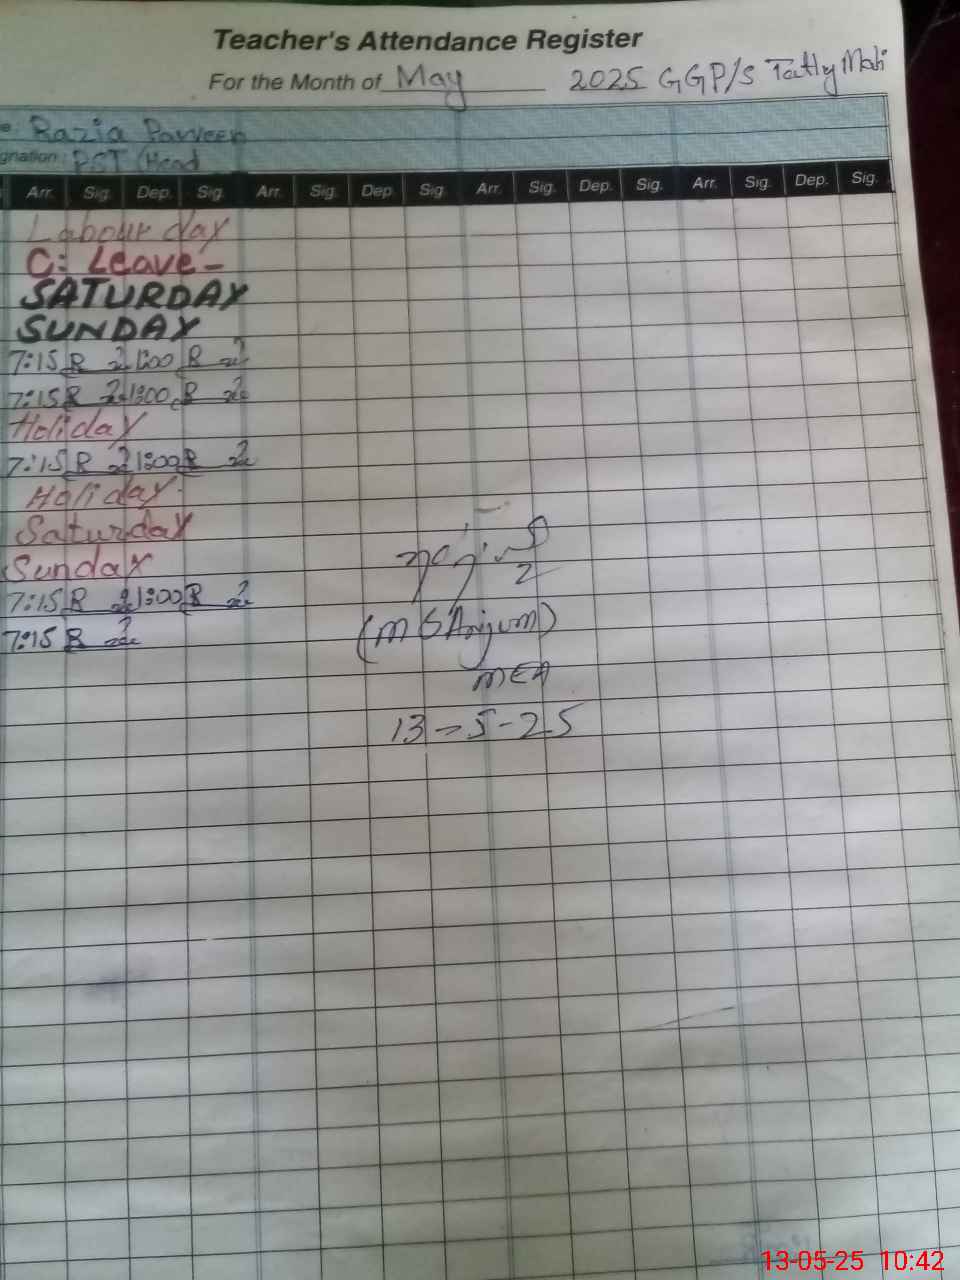 Teacher's Attendance Register
For the Month of May 2025 GGP/S Tatly Mali
e: Razia Parveen
gnation: PST (Head
Arr. Sig. Dep. Sig. Arr. Sig. Dep. Sig. Arr. Sig. Dep. Sig. Arr. Sig. Dep. Sig.
Labour day
C: Leave -
SATURDAY
SUNDAY
7:15 R 1:00 R
7:15 R 1:00 R
Holiday
7:15 R 1:00 R
Holiday
Saturday
Sunday
7:15 R 1:00 R
7:15 R
(M S Anjum)
MEA
13-5-25
13-05-25 10:42